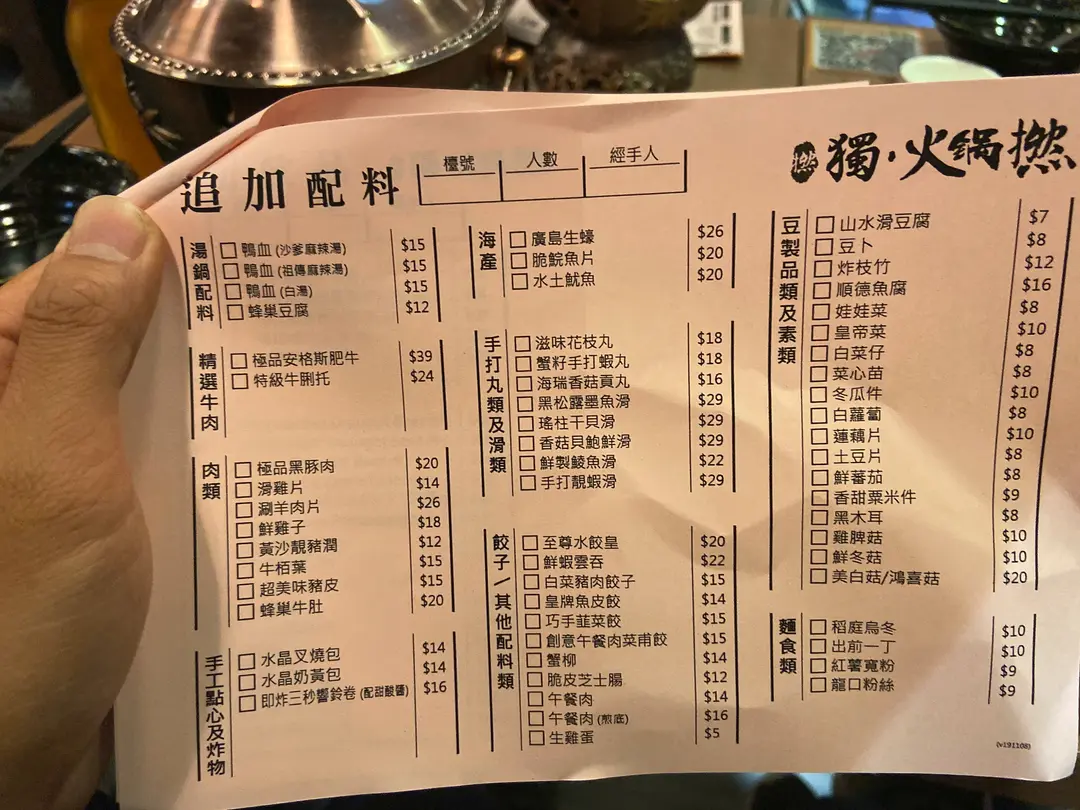 追加配料
檯號 人數 經手人
撚 獨·火鍋撚
湯鍋配料
鴨血 (沙爹麻辣湯) $15
鴨血 (祖傳麻辣湯) $15
鴨血 (白湯) $15
蜂巢豆腐 $12
精選牛肉
極品安格斯肥牛 $39
特級牛脷托 $24
肉類
極品黑豚肉 $20
滑雞片 $14
涮羊肉片 $26
鮮雞子 $18
黃沙靚豬潤 $12
牛栢葉 $15
超美味豬皮 $15
蜂巢牛肚 $20
手工點心及炸物
水晶叉燒包 $14
水晶奶黃包 $14
即炸三秒響鈴卷 (配甜酸醬) $16
海產
廣島生蠔 $26
脆鯇魚片 $20
水土魷魚 $20
手打丸類及滑類
滋味花枝丸 $18
蟹籽手打蝦丸 $18
海瑞香菇貢丸 $16
黑松露墨魚滑 $29
瑤柱干貝滑 $29
香菇貝鮑鮮滑 $29
鮮製鯪魚滑 $22
手打靚蝦滑 $29
餃子/其他配料類
至尊水餃皇 $20
鮮蝦雲吞 $22
白菜豬肉餃子 $15
皇牌魚皮餃 $14
巧手韮菜餃 $15
創意午餐肉菜甫餃 $15
蟹柳 $14
脆皮芝士腸 $12
午餐肉 $14
午餐肉 (煎底) $16
生雞蛋 $5
豆製品類及素類
山水滑豆腐 $7
豆卜 $8
炸枝竹 $12
順德魚腐 $16
娃娃菜 $8
皇帝菜 $10
白菜仔 $8
菜心苗 $8
冬瓜件 $10
白蘿蔔 $8
蓮藕片 $10
土豆片 $8
鮮蕃茄 $8
香甜粟米件 $9
黑木耳 $8
雞脾菇 $10
鮮冬菇 $10
美白菇/鴻喜菇 $20
麵食類
稻庭烏冬 $10
出前一丁 $10
紅薯寬粉 $9
龍口粉絲 $9
(v191108)